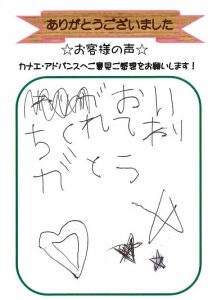 ありがとうございました
☆お客様の声☆
カナエ・アドバンスへご意見ご感想をお願いします！
がおい
ちくれてあり
がとう